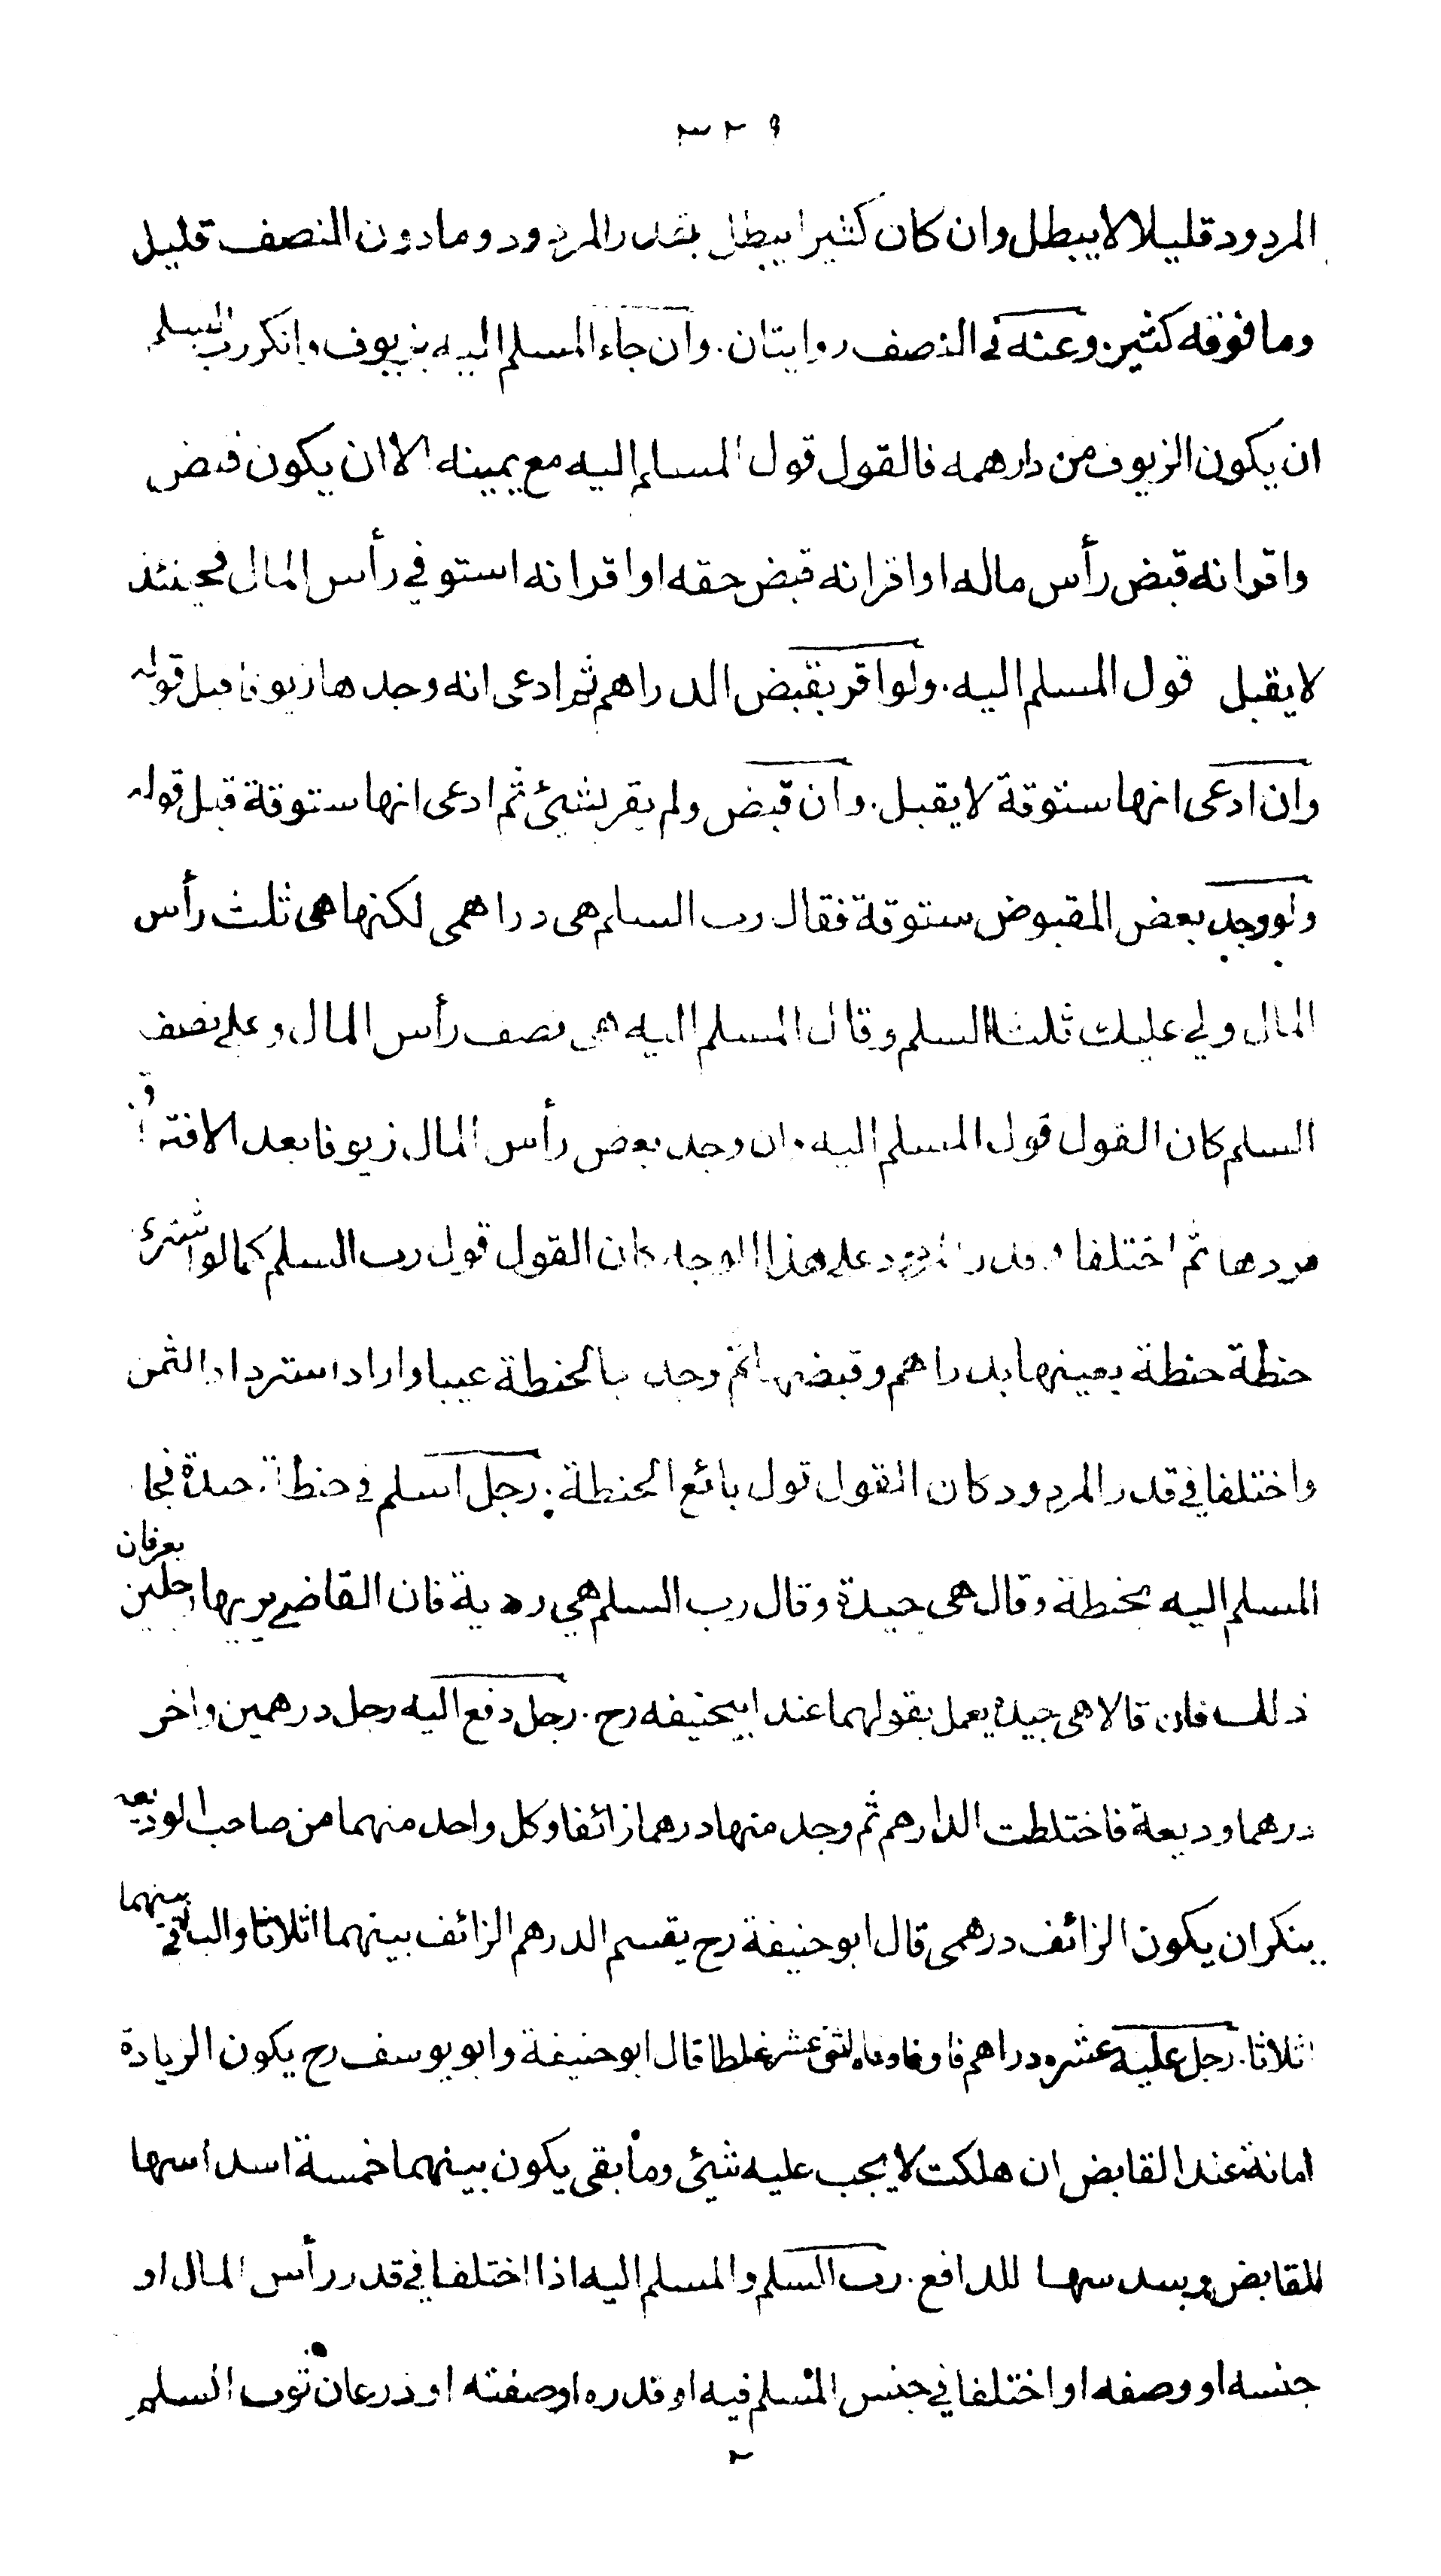 ٣٢٩
المردود قليلا لا يبطل وان كان كثيرا يبطل بقدر المردود وما دون النصف قليل
وما فوقه كثير وعنه في النصف روايتان . وان جاء المسلم اليه بزيوف وانكر رب السلم
ان يكون الزيوف من دارهمه فالقول قول المسلم اليه مع يمينه الا ان يكون قبض
واقر انه قبض رأس ماله او اقر انه قبض حقه او اقر انه استوفي رأس المال فحينئذ
لا يقبل قول المسلم اليه . ولو اقر بقبض الدراهم ثم ادعى انه وجدها زيوفا قبل قوله
وان ادعى انها ستوقة لا يقبل . وان قبض ولم يقر بشيئ ثم ادعى انها ستوقة قبل قوله
ولو وجد بعض المقبوض ستوقة فقال رب السلم هى دراهمى لكنها هى ثلث رأس
المال ولي عليك ثلثا السلم وقال المسلم اليه هى نصف رأس المال وعلي نصف
السلم كان القول قول المسلم اليه . وان وجد بعض رأس المال زيوفا بعد الافتراق
فردها ثم اختلفا في قدر المردود علي هذا الوجه كان القول قول رب السلم كما لو اشترى
حنطة حنطة بعينها بدراهم وقبضها ثم وجد بالحنطة عيبا واراد استرداد الثمن
واختلفا في قدر المردود كان القول قول بائع الحنطة . رجل اسلم في حنطة جيدة فجا
المسلم اليه بحنطة وقال هى جيدة وقال رب السلم هي ردية فان القاضي يريها رجلين يعرفان
ذلك فان قالا هى جيدة يعمل بقولهما عند ابيحنيفه رح . رجل دفع اليه رجل درهمين واخر
درهما وديعة فاختلطت الدارهم ثم وجد منها درهما زائفا وكل واحد منهما من صاحب الوديعة
ينكر ان يكون الزائف درهمى قال ابو حنيفة رح يقسم الدرهم الزائف بينهما اثلاثا والباقي بينهما
اثلاثا . رجل عليه عشره دراهم فاوفاه اثنى عشر غلطا قال ابو حنيفة وابو يوسف رح يكون الزيادة
امانة عند القابض ان هلكت لا يجب عليه شيئ وما بقى يكون بينهما خمسة اسداسها
للقابض وسدسها للدافع . رب السلم والمسلم اليه اذا اختلفا في قدر رأس المال او
جنسه او وصفه او اختلفا في جنس المسلم فيه او قدره او صفته او ذرعان ثوب السلم
٢